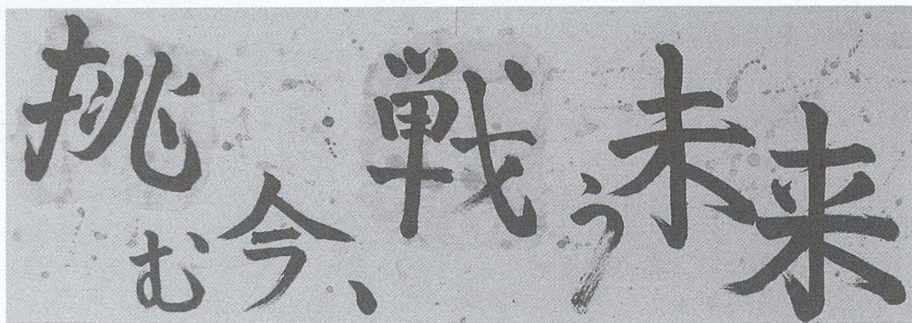 挑む今、戦う未来